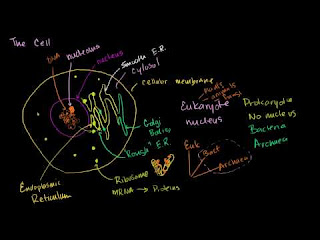 The Cell
DNA
nucleolus
nucleus
Smooth E.R.
cytosol
cellular membrane
Plants
animals
fungi
Eukaryote
nucleus
Prokaryote
No nucleus
Bacteria
Archaea
Golgi
Bodies
Rough E.R.
Endoplasmic
Reticulum
Ribosome
mRNA → Proteins
Euk
Bact
Archaea